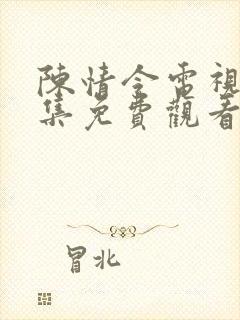 陳情令電視
集免費觀看
冒北